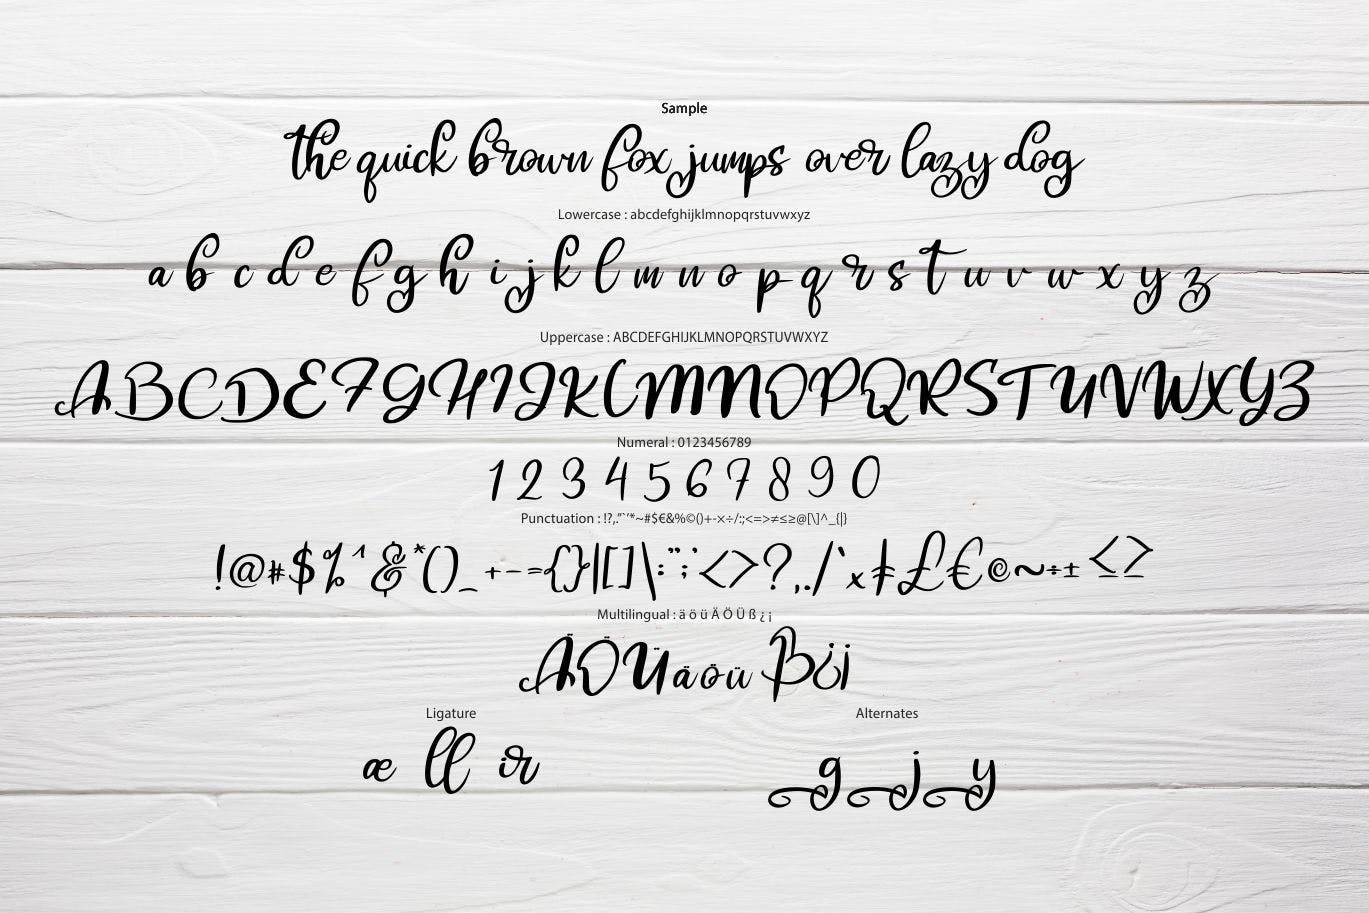 Sample
the quick brown fox jumps over lazy dog
Lowercase : abcdefghijklmnopqrstuvwxyz
a b c d e f g h i j k l m n o p q r s t u v w x y z
Uppercase : ABCDEFGHIJKLMNOPQRSTUVWXYZ
A B C D E F G H I J K L M N O P Q R S T U V W X Y Z
Numeral : 0123456789
1 2 3 4 5 6 7 8 9 0
Punctuation : !?,."`'*~#$€&%©()+-×÷/:;<=>≠≤≥@[\]^_{|}
!@#$%^&*()_+-={}|[]\:";'<>?,./`×≠£€©~÷±≤≥
Multilingual : ä ö ü Ä Ö Ü ß ¿ ¡
Ä Ö Ü ä ö ü ß ¿ ¡
Ligature
æ ll ir
Alternates
g j y